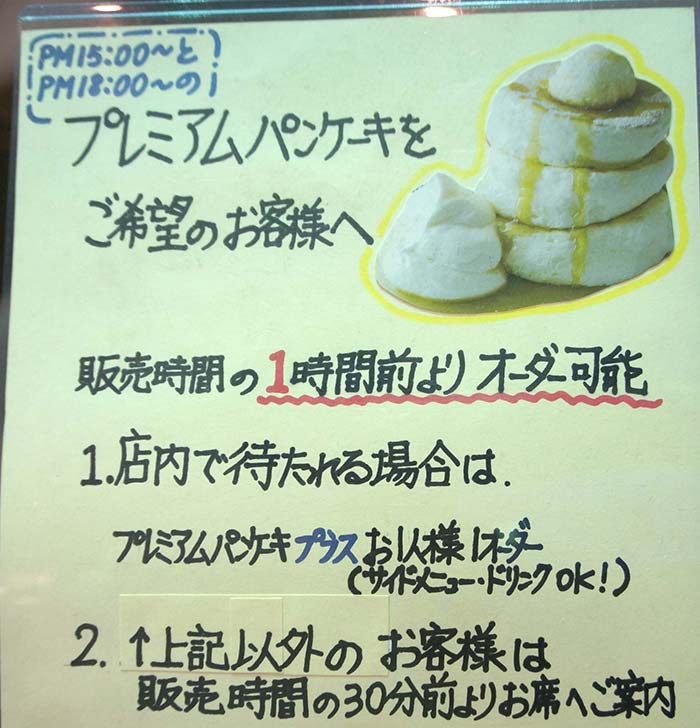 PM15:00～と
PM18:00～の
プレミアムパンケーキを
ご希望のお客様へ
販売時間の1時間前よりオーダー可能
1.店内で待たれる場合は.
プレミアムパンケーキプラスお1人様1オーダー
(サイドメニュー・ドリンクOK!)
2.↑上記以外のお客様は
販売時間の30分前よりお席へご案内